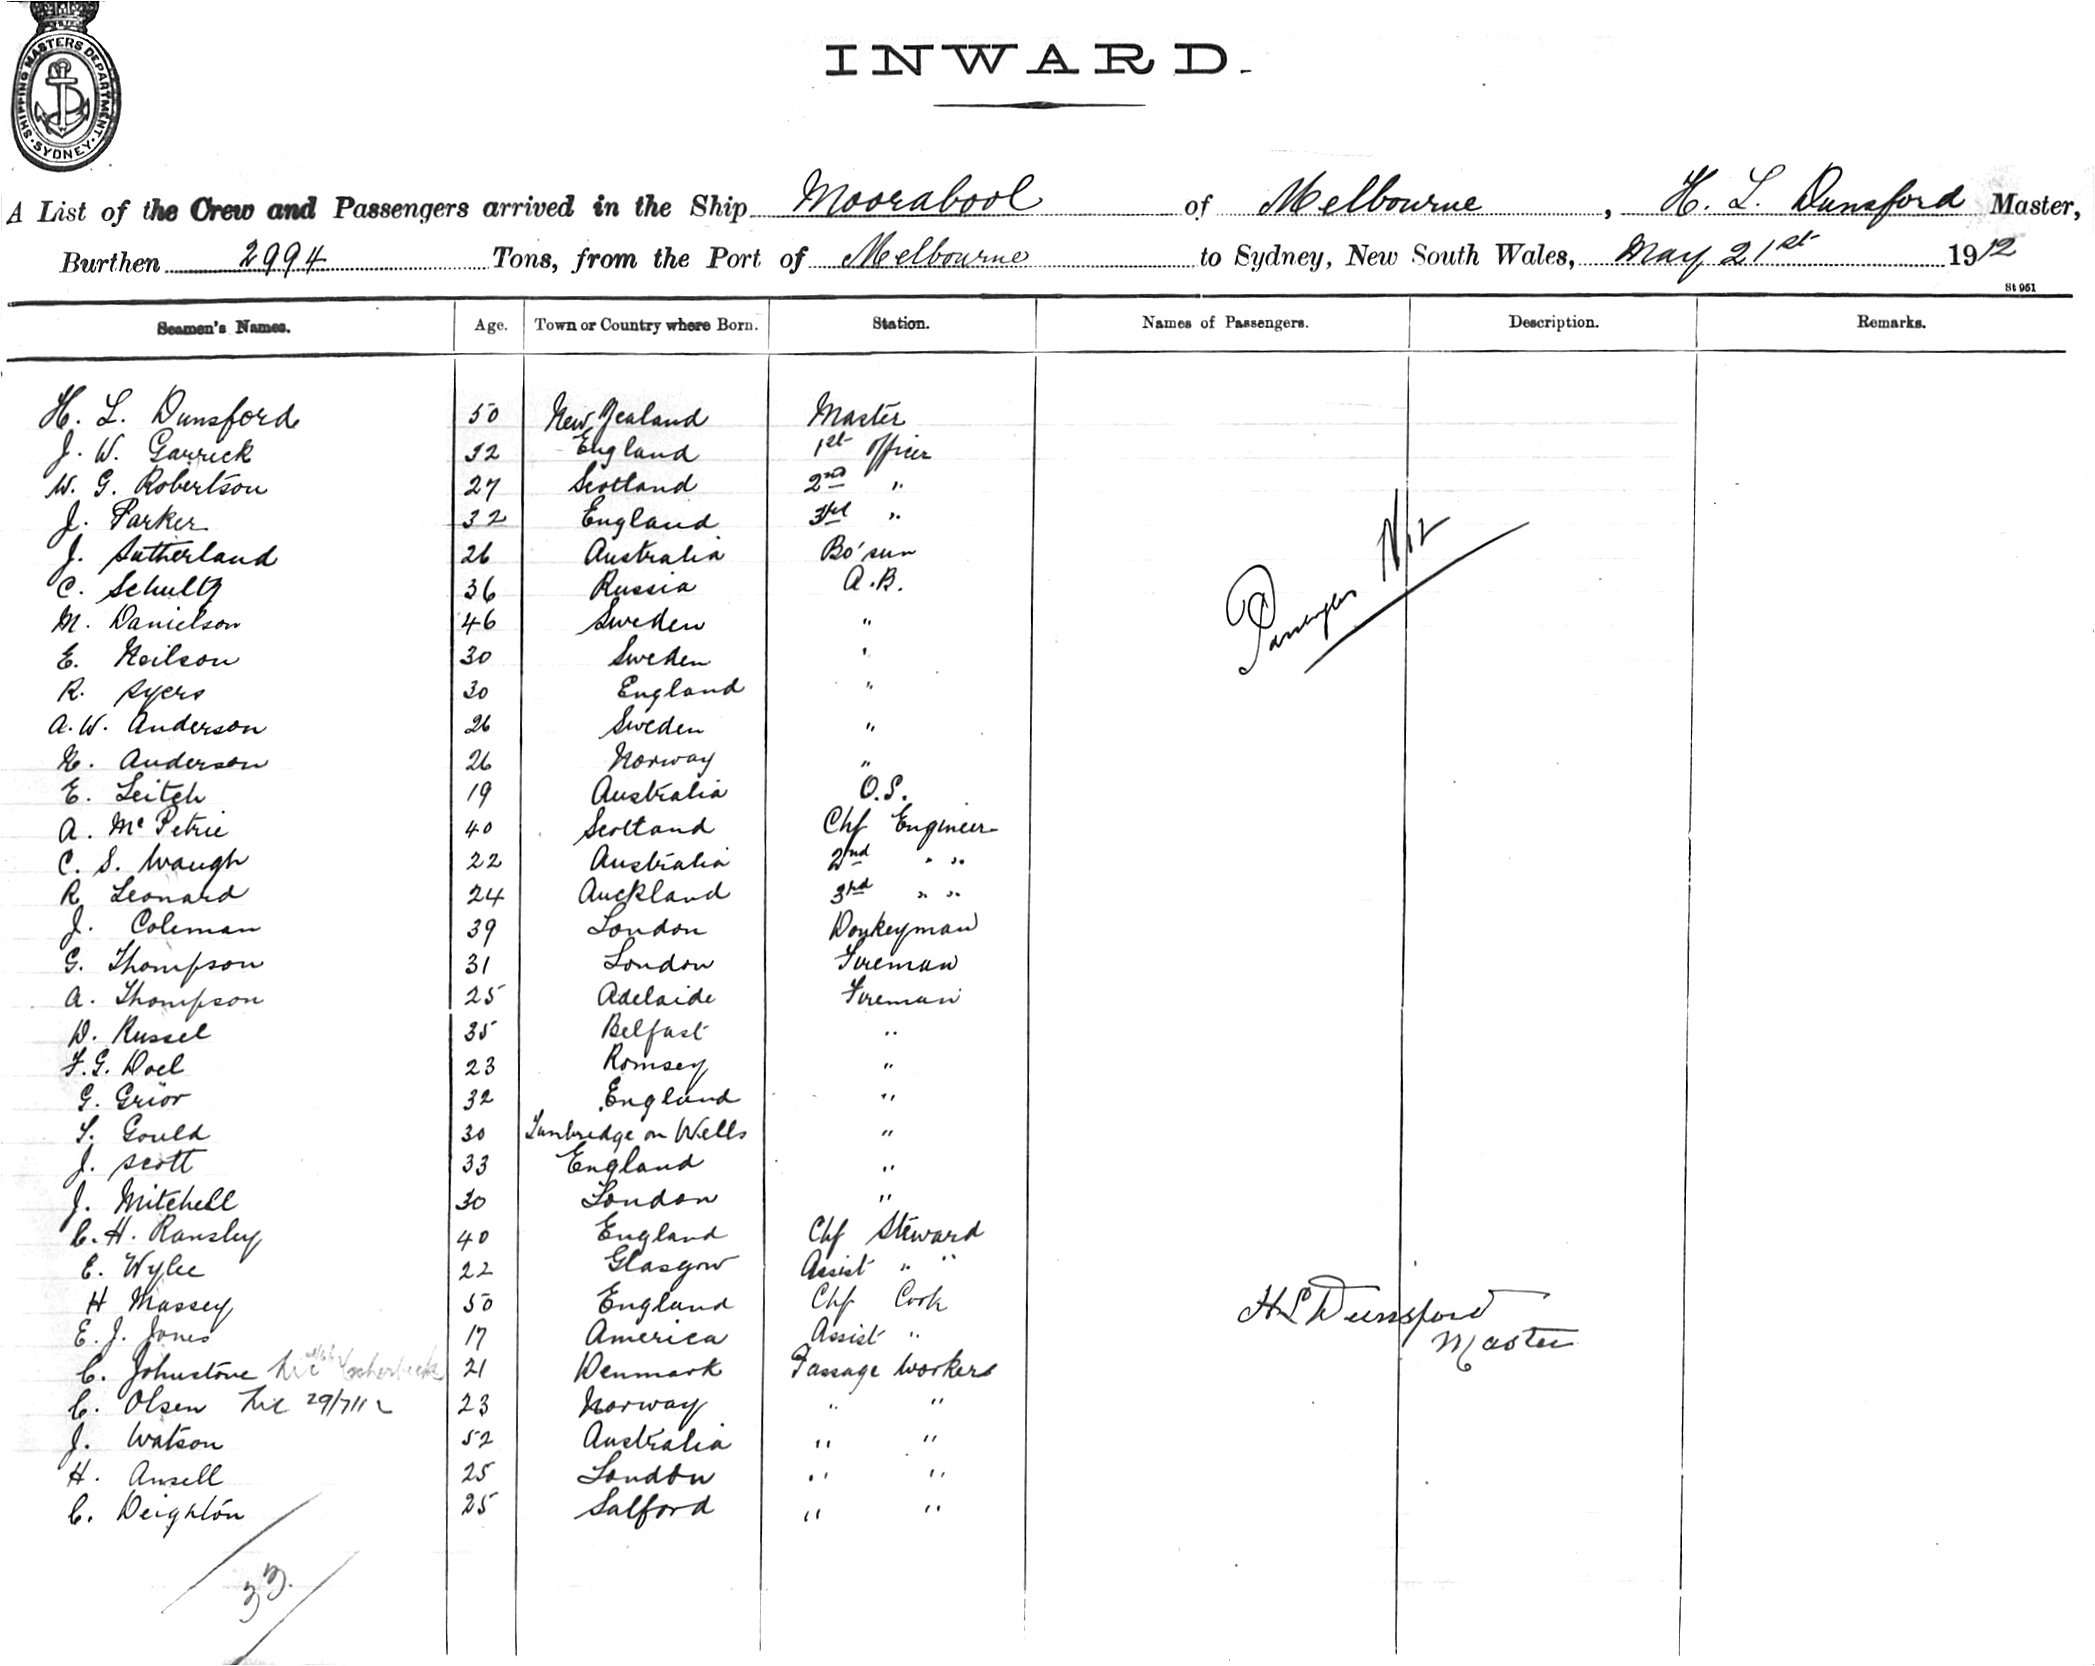 SHIPPING MASTERS DEPARTMENT · SYDNEY ·
INWARD.
A List of the Crew and Passengers arrived in the Ship Moorabool of Melbourne, H. L. Dunsford Master,
Burthen 2994 Tons, from the Port of Melbourne to Sydney, New South Wales, May 21st 1912
St 951
Seamen's Names. Age. Town or Country where Born. Station. Names of Passengers. Description. Remarks.
H. L. Dunsford 50 New Zealand Master
J. W. Garrick 32 England 1st Officer
W. G. Robertson 27 Scotland 2nd "
J. Parker 32 England 3rd "
J. Sutherland 26 Australia Bo'sun
C. Schultz 36 Russia A.B.
M. Danielson 46 Sweden "
E. Neilson 30 Sweden "
R. Syers 30 England "
A. W. Anderson 26 Sweden "
N. Anderson 26 Norway "
E. Leitch 19 Australia O.S.
A. McPetrie 40 Scotland Chf Engineer
C. S. Waugh 22 Australia 2nd " "
R. Leonard 24 Auckland 3rd " "
J. Coleman 39 London Donkeyman
G. Thompson 31 London Fireman
A. Thompson 25 Adelaide Fireman
D. Russel 35 Belfast "
F. G. Doel 23 Romsey "
G. Grior 32 England "
T. Gould 30 Tunbridge on Wells "
J. Scott 33 England "
J. Mitchell 30 London "
C. H. Ransley 40 England Chf Steward
E. Wylie 22 Glasgow Assist " "
H Massey 50 England Chf Cook
E. J. Jones 17 America Assist "
C. Johnstone 21 Denmark Passage Workers
C. Olsen 29/7/12 23 Norway " "
J. Watson 52 Australia " "
H. Ansell 25 London " "
C. Deighton 25 Salford " "
33.
Passengers Nil
H L Dunsford
Master